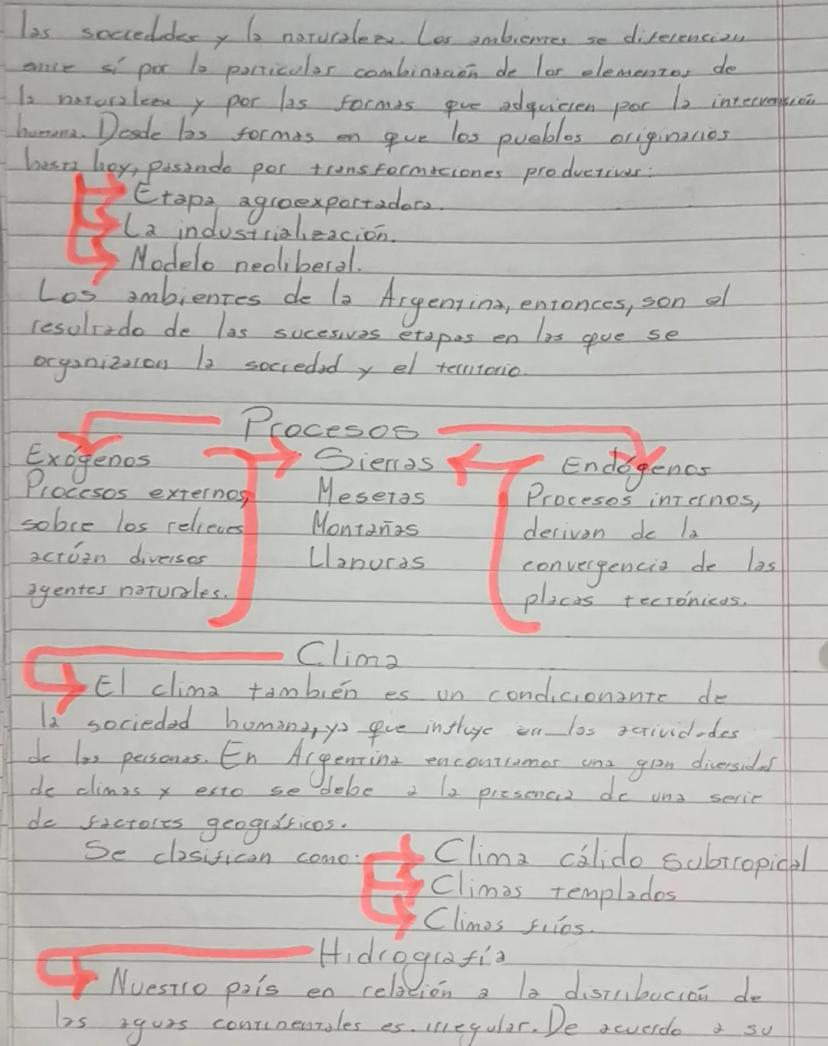 las sociedades y la naturaleza. Los ambientes se diferencian
entre sí por la particular combinación de los elementos de
la naturaleza y por las formas que adquieren por la intervención
humana. Desde las formas en que los pueblos originarios
hasta hoy, pasando por transformaciones productivas:
Etapa agroexportadora.
La industrialización.
Modelo neoliberal.
Los ambientes de la Argentina, entonces, son el
resultado de las sucesivas etapas en las que se
organizaron la sociedad y el territorio.
Procesos
Exógenos
Procesos externos,
sobre los relieves
actúan diversos
agentes naturales.
Sierras
Mesetas
Montañas
Llanuras
Endógenos
Procesos internos,
derivan de la
convergencia de las
placas tectónicas.
Clima
El clima también es un condicionante de
la sociedad humana, ya que influye en las actividades
de las personas. En Argentina encontramos una gran diversidad
de climas y esto se debe a la presencia de una serie
de factores geográficos.
Se clasifican como:
Clima cálido subtropical
Climas templados
Climas fríos.
Hidrografía
Nuestro país en relación a la distribución de
las aguas continentales es irregular. De acuerdo a su